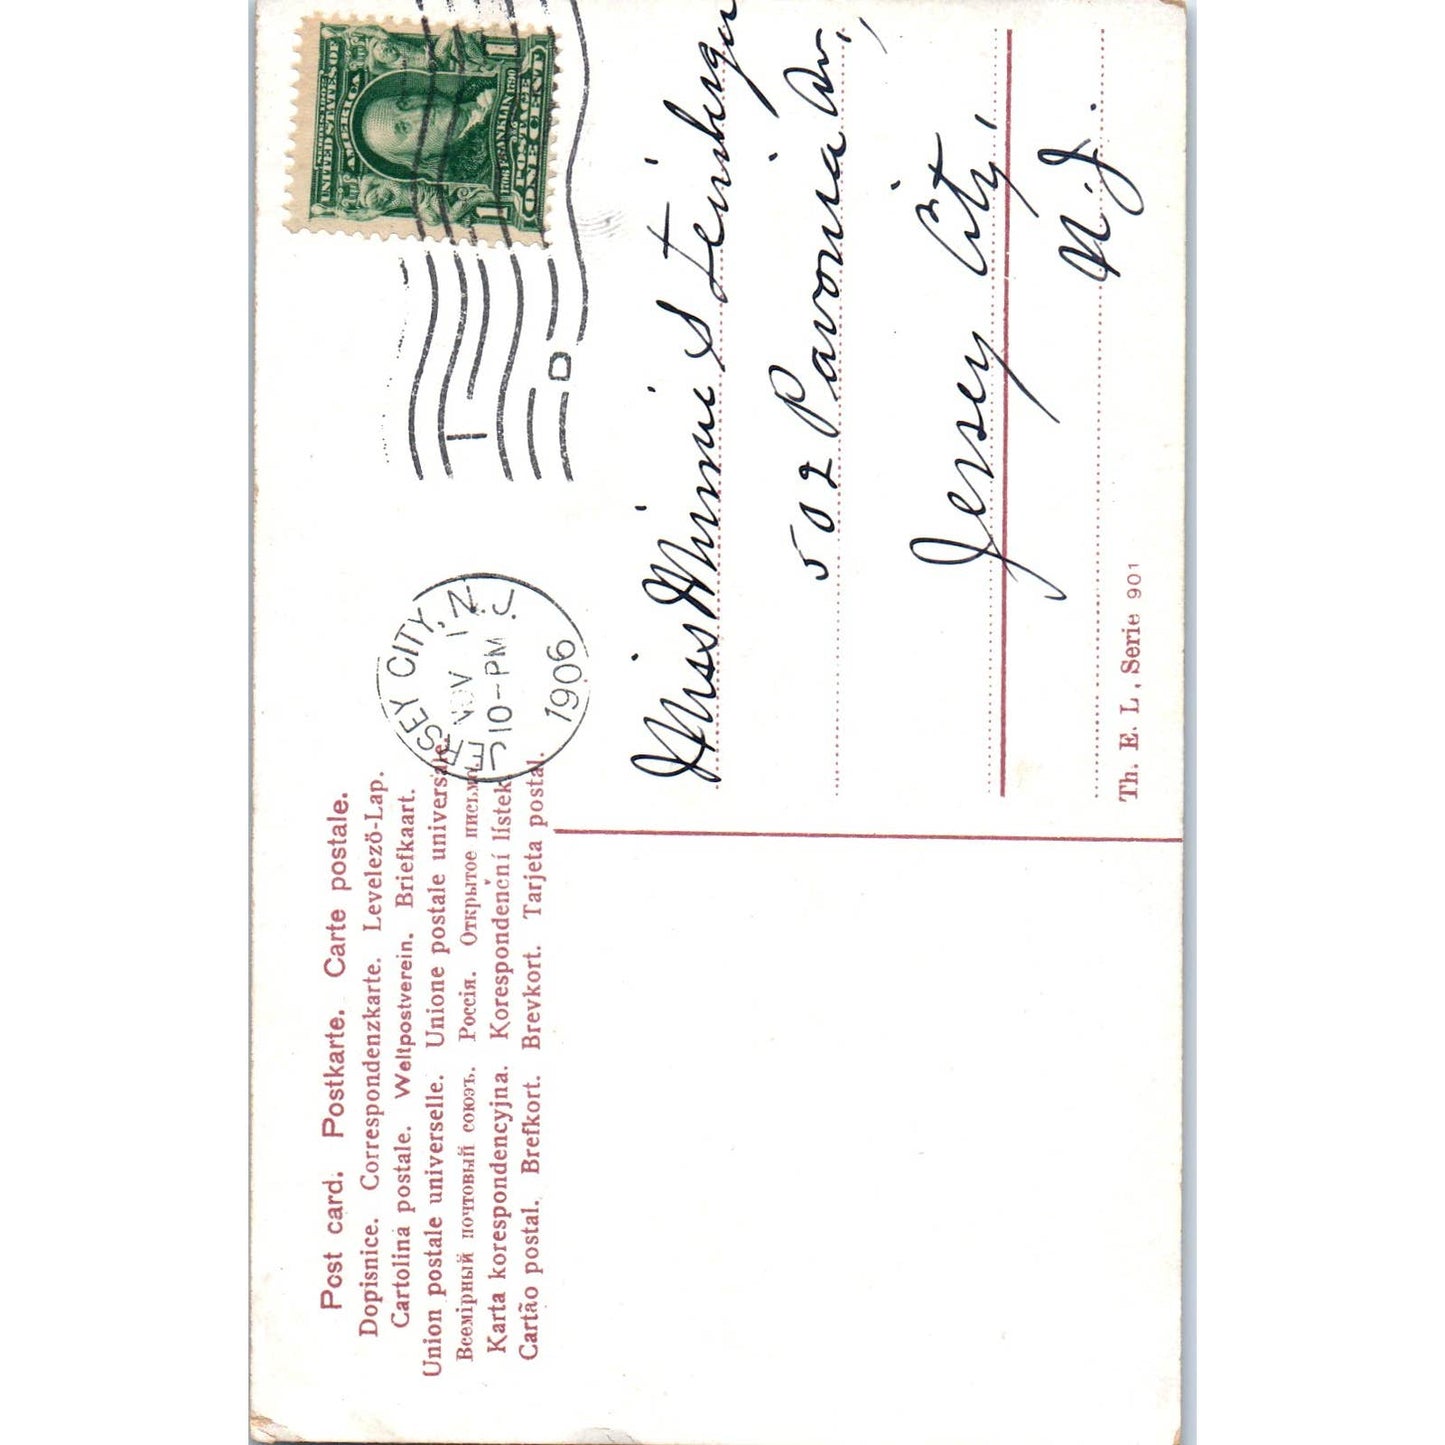 Post card. Postkarte. Carte postale.
Dopisnice. Correspondenzkarte. Levelező-Lap.
Cartolina postale. Weltpostverein. Briefkaart.
Union postale universelle. Unione postale universale.
Всемірный почтовый союзъ. Россія. Открытое письмо.
Karta korespondencyjna. Korespondenční lístek.
Cartão postal. Brefkort. Brevkort. Tarjeta postal.
JERSEY CITY, N.J.
NOV 1
10-PM
1906
SERIES 1902
UNITED STATES OF
AMERICA
1706 FRANKLIN 1790
POSTAGE
1 ONE CENT 1
Miss Minnie Steinberger
502 Pavonia Av,
Jersey City,
N.J.
Th. E. L. Serie 901